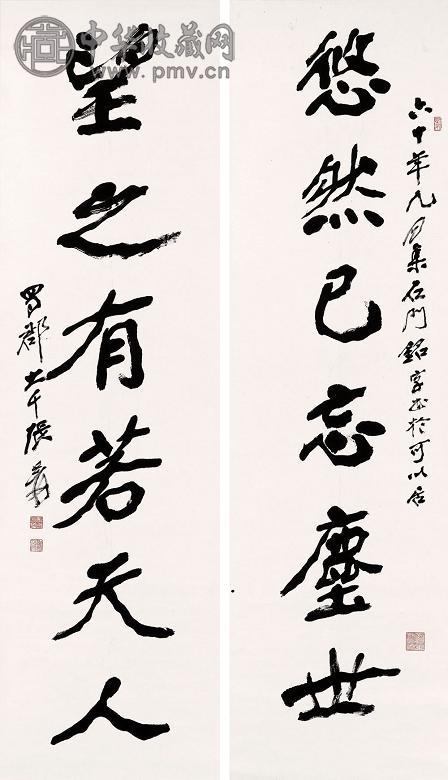 中华收藏网
www.pmv.cn
六十年九月集石門銘字書於可以居
悠然已忘塵世
望之有若天人
蜀郡大千張爰